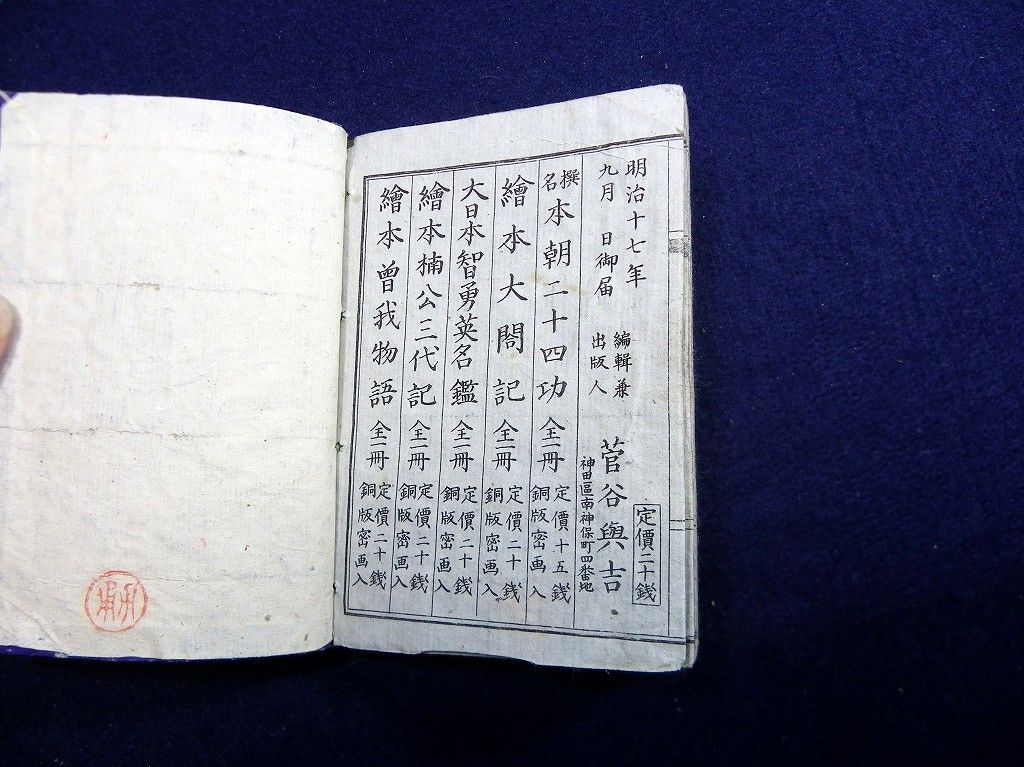 明治十七年
九月　日御届
編輯兼
出版人
菅谷與吉
神田區南神保町四番地
定價二十錢
撰名 本朝二十四功 全一冊 定價十五錢 銅版密画入
繪本大閤記 全一冊 定價二十錢 銅版密画入
大日本智勇英名鑑 全一冊 定價二十錢 銅版密画入
繪本楠公三代記 全一冊 定價二十錢 銅版密画入
繪本曾我物語 全一冊 定價二十錢 銅版密画入